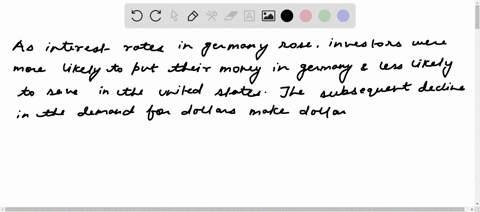 As interest rates in germany rose. investors were
more likely to put their money in germany & less likely
to save in the united states. The subsequent decline
in the demand for dollars make dollar